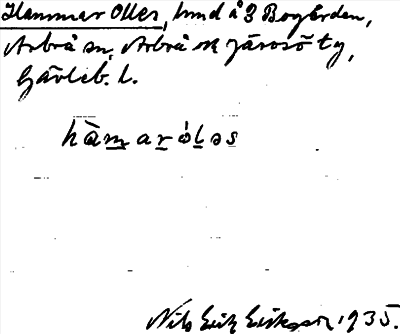 Hammar Olles, hmd å 3 Bogården,
Arbrå sn, Arbrå ok Järvsö tg,
Gävleb. l.
hàmaróləs
Nils Erik Eriksson 1935.